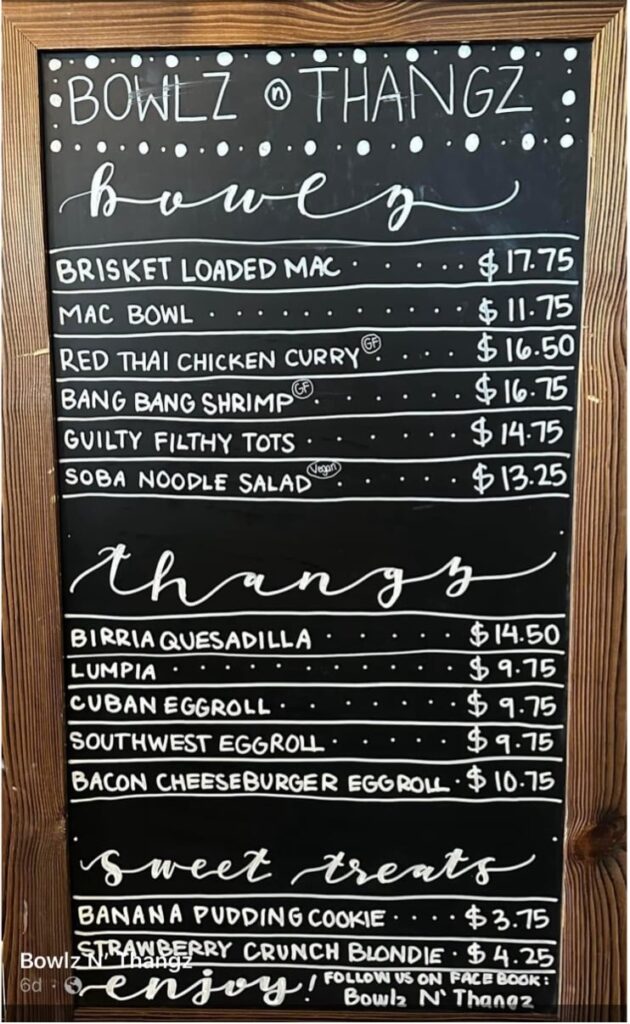 BOWLZ n THANGZ
bowlz
BRISKET LOADED MAC · · · · · · $17.75
MAC BOWL · · · · · · · · · · · $11.75
RED THAI CHICKEN CURRY GF · · · · $16.50
BANG BANG SHRIMP GF · · · · · · $16.75
GUILTY FILTHY TOTS · · · · · · $14.75
SOBA NOODLE SALAD Vegan · · · · · $13.25
thangz
BIRRIA QUESADILLA · · · · · $14.50
LUMPIA · · · · · · · · · · $9.75
CUBAN EGGROLL · · · · · · · $9.75
SOUTHWEST EGGROLL · · · · · $9.75
BACON CHEESEBURGER EGGROLL · $10.75
sweet treats
BANANA PUDDING COOKIE · · · · $3.75
STRAWBERRY CRUNCH BLONDIE · $4.25
enjoy! FOLLOW US ON FACEBOOK:
Bowlz N' Thangz
Bowlz N' Thangz
6d ·